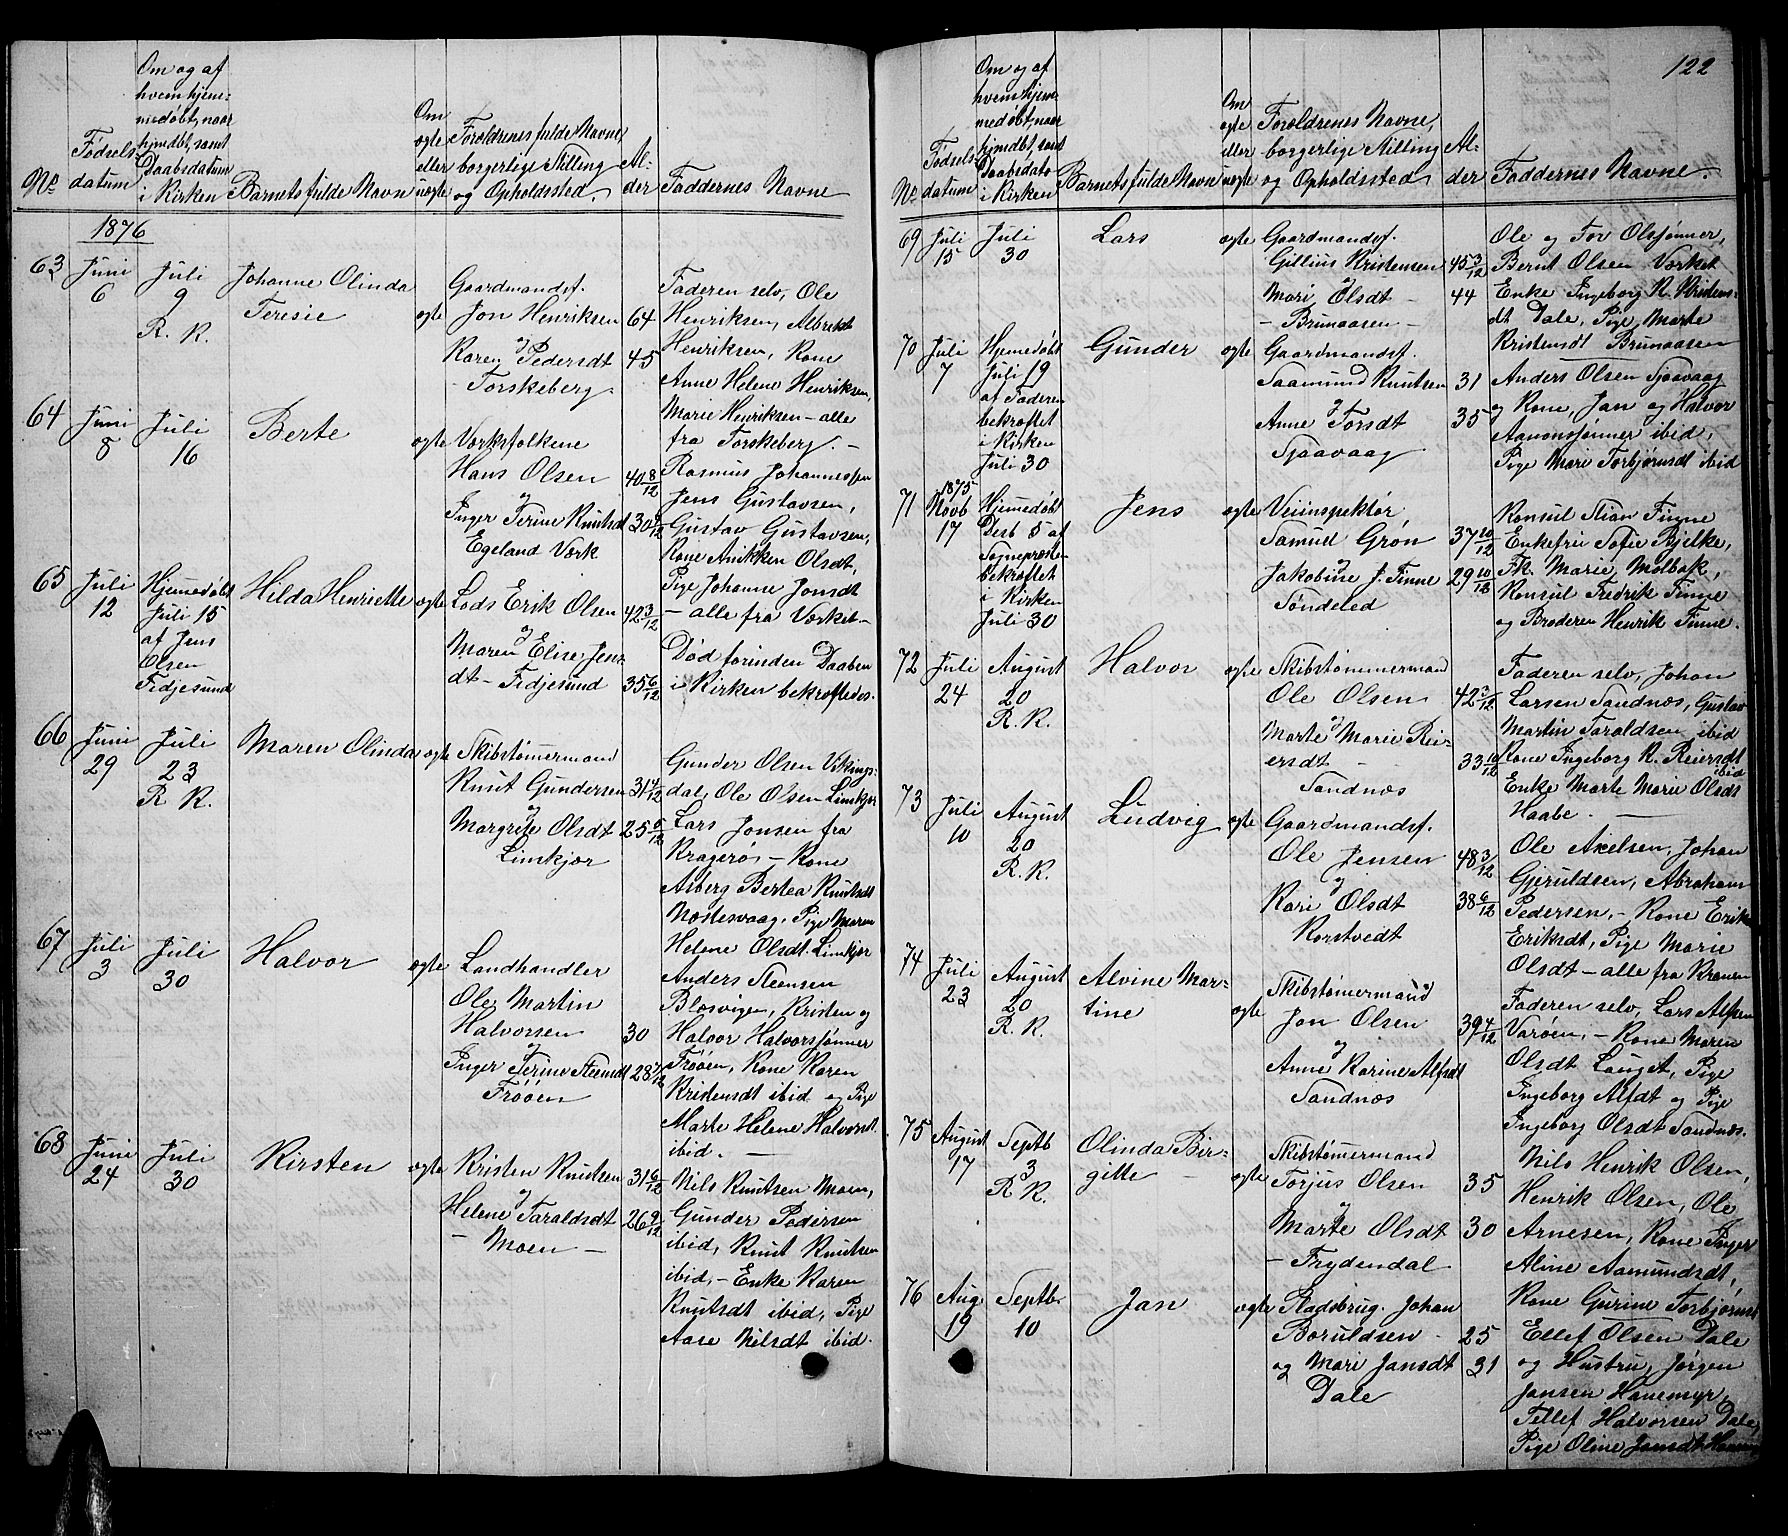 122
Om og af
hvem hjem-
medøbt, naar
hjmdbt, samt
Daabsdatum
i Kirken
No
Fødsels
datum
Barnets fulde Navn
Om
ægte
eller
uægte
Forældrenes fulde Navne,
borgerlige Stilling
og Opholdssted.
Al-
der
Faddernes Navne
1876
63
Juni
6
Juli
9
R. K.
Johanne Olinda
Teresie
ægte
Gaardmandsf.
Jon Henriksen 64
og
Karen Pedersdt 45
- Torskeberg -
Faderen selv, Ole
Henriksen, Albrekt
Henriksen, Kone
Anne Helene Henriksen,
Marie Henriksen - alle
fra Torskeberg. -
64
Juni
8
Juli
16
Berte
ægte
Værksfolkene
Hans Olsen 40 8/12
og
Inger Terine Knutsdt 30 9/12
Egeland Værk
Rasmus Johannessen
Jens Gustavsen,
Gustav Gustavsen,
Kone Anikken Olsdt,
Pige Johanne Jonsdt
- alle fra Værket -
65
Juli
12
Hjemmedøbt
Juli 15
af Jens
Olsen
Fidjesund
Hilda Henriette
ægte
Lods Erik Olsen 42 3/12
og
Maren Elise Jens
dt - Fidjesund 35 6/12
Død forinden Daaben
i Kirken bekræftedes.
66
Juni
29
Juli
23
R. K.
Maren Olinda
ægte
Skibstømmermand
Knut Gundersen 31 4/12
og
Margrete Olsdt 25 5/12
Limkjær
Gunder Olsen Vikings-
dal, Ole Olsen Limkjær
Lars Jonsen fra
Kragerø - Kone
Asberg Bertea Knutsdt
Næstesvaag, Pige Maren
Helene Olsdt. Limkjær
67
Juli
3
Juli
30
Halvor
ægte
Landhandler
Ole Martin
Halvorsen 30
og
Inger Terine Steensdt 28 7/12
Frøøen
Anders Steensen
Blosvigen, Kristen og
Halvor Halvorsjønner
Frøøen, Kone Karen
Kristensdt ibid og Pige
Marte Helene Halvorsdt.
ibid. -
68
Juni
24
Juli
30
Kirsten
ægte
Kristen Knutsen 31 6/12
og
Helene Taraldsdt 26 9/12
- Moen -
Nils Knutsen Moen,
Gunder Pedersen
ibid, Knut Knutsen
ibid, - Enke Karen
Knutsdt ibid, Pige
Aase Nilsdt ibid.
Om og af
hvem hjem-
medøbt, naar
hjmdbt, samt
Daabsdato
i Kirken
No
Fødsels
datum
Barnets fulde Navn
Om
ægte
eller
uægte
Forældrenes Navne,
borgerlige Stilling
og Opholdssted
Al-
der
Faddernes Navne.
69
Juli
15
Juli
30
Lars
ægte
Gaardmandsf.
Gillius Kristensen 45 3/12
og
Mari Olsdt - 44
- Brunaasen -
Ole og Tor Olsjønner,
Bernt Olsen Værket
Enke Ingeborg K. Kristens-
dt Dale, Pige Marte
Kristensdt Brunaasen
70
Juli
7
Hjemedøbt
Juli 19
af Faderen
bekræftet
i Kirken
Juli 30
Gunder
ægte
Gaardmandsf.
Saamund Knutsen 31
og
Anne Torsdt 35
Sjaavaag
Anders Olsen Sjaavaag
og Kone, Jan og Halvor
Aanonsjønner ibid,
Pige Mari Torbjørnsdt ibid
71
1875
Novb
17
Hjemedøbt
Desb 5 af
Sognepresten
bekræftet
i Kirken
Juli 30
Jens
ægte
Veiinspektør
Samuel Grøn 37 10/12
og
Jakobine J. Finne 29 10/12
Søndeled
Konsul Stian Finne
Enkefru Sofie Bjelke,
Fk. Marie Molbak,
Konsul Fredrik Finne
og Broderen Henrik Finne.
72
Juli
24
August
20
R. K.
Halvor
ægte
Skibstømmermand
Ole Olsen 42 3/12
og
Marte Marie Rei-
ersdt - 33 10/12
Sandnæs
Faderen selv, Johan
Larsen Sandnæs, Gustav
Martin Taraldsen ibid
Kone Ingeborg K. Reiersdt
ibid
Enke Marte Marie Olsdt
Haabe. -
73
Juli
10
August
20
R. K.
Ludvig
ægte
Gaardmandsf.
Ole Jensen 48 3/12
og
Kari Olsdt 38 6/12
Korstvedt
Ole Axelsen, Johan
Gjeruldsen, Abraham
Pedersen, - Kone Erike
Eriksdt, Pige Marie
Olsdt - alle fra Kranen
74
Juli
23
August
20
R. K.
Alvine Mar-
tine
ægte
Skibstømmermand
Jon Olsen 39 4/12
og
Anne Karine Alfsdt
Sandnæs
Faderen selv, Lars Alfsen
Varøen, - Kone Maren
Olsdt Lauget, Pige
Ingeborg Alfdt og Pige
Ingeborg Olsdt Sandnæs.
75
August
17
Septb
3
R. K.
Olinda Bir-
gitte -
ægte
Skibstømmermand
Torjus Olsen 35
og
Marte Olsdt 30
- Frydendal
Nils Henrik Olsen,
Henrik Olsen, Ole
Arnesen, Kone Inger
Aline Aamundsdt,
Kone Gurine Torbjørnsdt
76
Aug
19
Septb.
10
Jan
ægte
Gladsbrug. Johan
Boruldsen - 25
og Mari Jansdt 31
Dale
Ellef Olsen Dale
og Hustru, Jørgen
Jansen Hanemyr,
Tellef Halvorsen Dale,
Pige Oline Jansdt